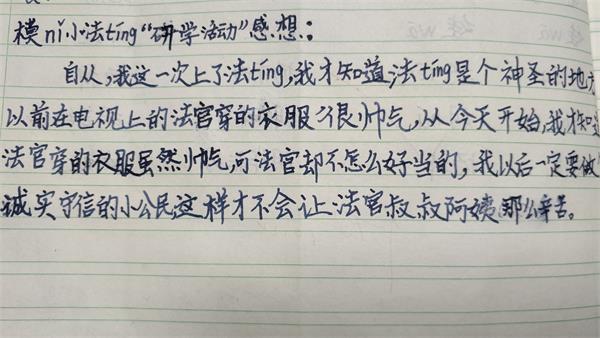 模nǐ小法tíng“研学活动”感想：
自从，我这一次上了法tíng，我才知道法tíng是个神圣的地方
以前在电视上的法官穿的衣服很帅气，从今天开始，我才知道
法官穿的衣服虽然帅气，可法官却不怎么好当的，我以后一定要做
诚实守信的小公民这样才不会让法官叔叔阿姨那么辛苦。